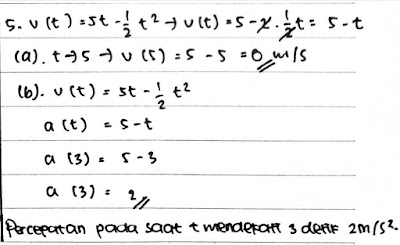 5. v(t) = 5t - 1/2 t² → v(t) = 5 - 2 . 1/2 t = 5 - t
(a). t → 5 → v(5) = 5 - 5 = 0 m/s
(b). v(t) = 5t - 1/2 t²
a(t) = 5 - t
a(3) = 5 - 3
a(3) = 2
Percepatan pada saat t mendekati 3 detik 2m/s².